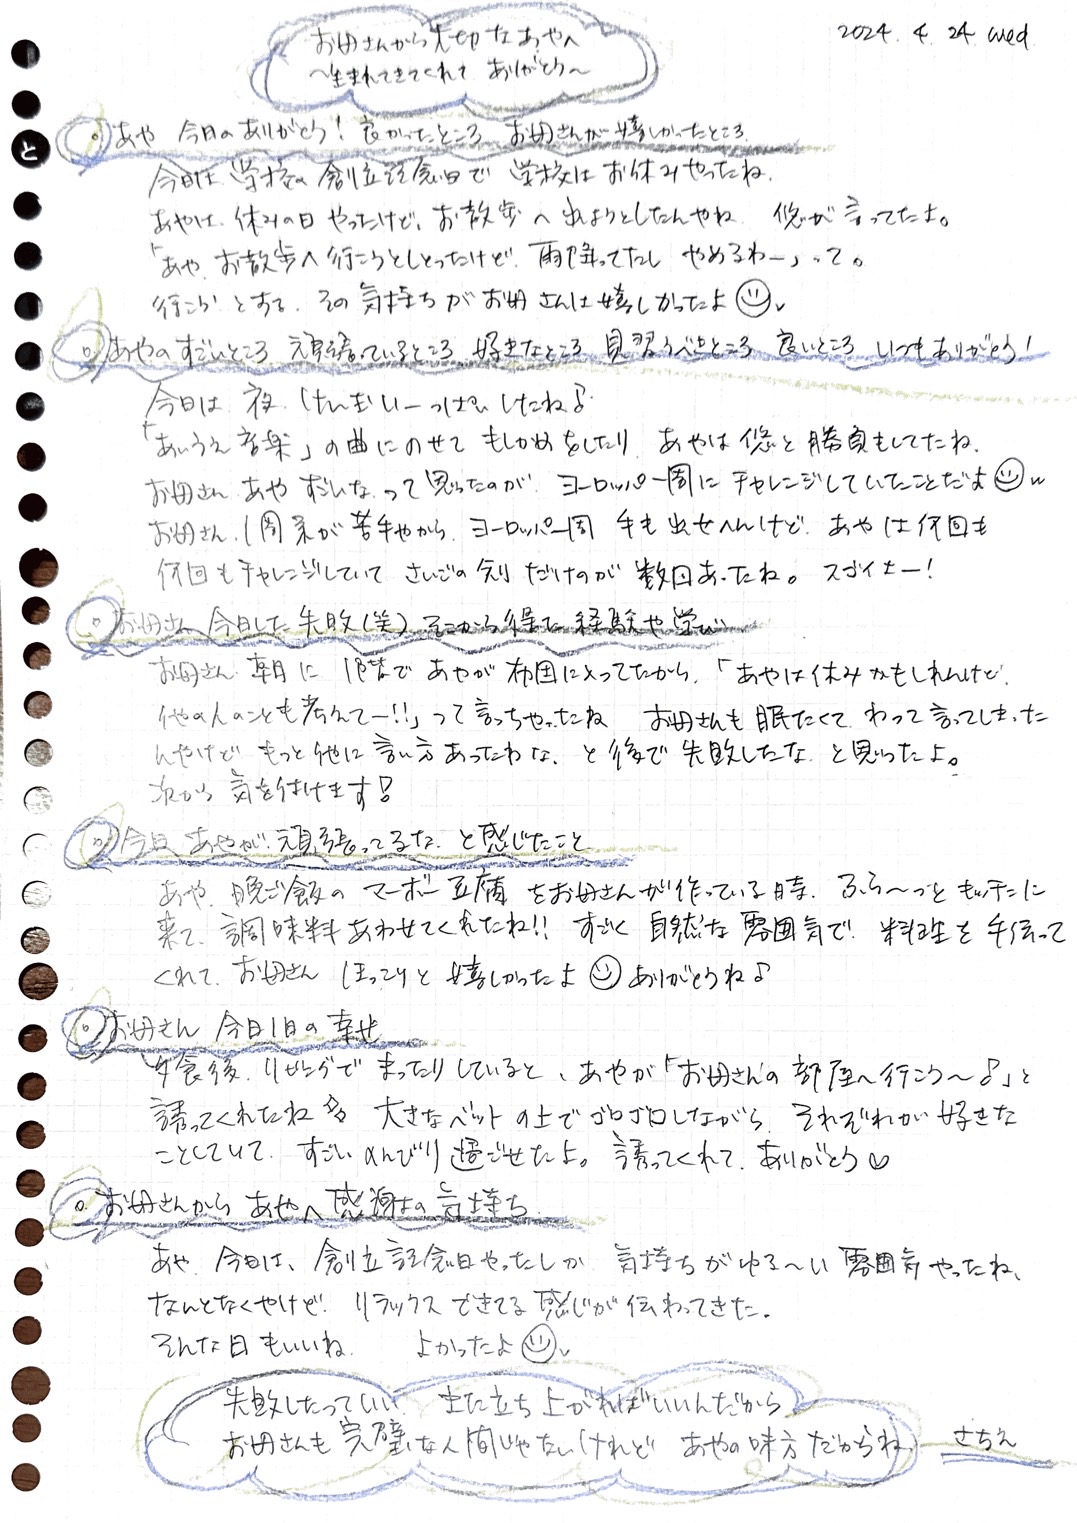 2024. 4. 24 wed
お母さんから大切なあやへ
〜生まれてきてくれて ありがとう〜
と
あや 今日のありがとう! 良かったところ お母さんが嬉しかったところ
今日は 学校の創立記念日で 学校は お休みやったね。
あやは、休みの日 やったけど、お散歩へ 出ようとしたんやね 悠が言ってたよ。
「あや、お散歩へ行こうとしとったけど、雨降ってたし やめるわー」って。
行こうとする、その気持ちが お母さんは嬉しかったよ
あやのすごいところ 頑張っているところ 好きなところ 見習うべきところ 良いところ いつもありがとう!
今日は 夜、けんだまいーっぱい したね♪
「あいうえ音楽」の曲にのせて もしかめをしたり あやは 悠と勝負もしてたね。
お母さん、あや すごいな って思ったのが、ヨーロッパ一周に チャレンジしていたことだよ
お母さん、1周系が苦手やから、ヨーロッパ一周 手も出せへんけど、あやは何回も
何回もチャレンジしていて さいごの剣 だけのが 数回あったね。スゴイなー!
お母さん 今日した失敗(笑) そこから得た経験や学び
お母さん、朝に 1階で あやが布団に入ってたから、「あやは休みかもしれんけど、
他の人のことも考えてー!!」って言っちゃったね お母さんも眠たくて、わって言ってしまった
んやけど もっと他に言い方あったわな、と後で失敗したな、と思ったよ。
次から 気を付けます!
今日 あやが頑張ってるな、と感じたこと
あや、晩ご飯の マーボー豆腐 をお母さんが作っている時、ふら〜っとキッチンに
来て、調味料あわせてくれたね!! すごく 自然な 雰囲気で、料理を手伝って
くれて、お母さん ほっこりと 嬉しかったよ ありがとうね♪
お母さん 今日1日の幸せ
夕食後、リビングで まったりしていると、あやが「お母さんの部屋へ行こう〜♪」と
誘ってくれたね 大きなベットの上で ゴロゴロしながら、それぞれが好きな
ことしていて、すごい のんびり過ごせたよ。誘ってくれて、ありがとう♡
お母さんから あやへ 感謝の気持ち
あや、今日は、創立記念日やったしか 気持ちが ゆる〜い 雰囲気やったね、
なんとなくやけど、リラックスできてる感じが伝わってきた。
そんな日もいいね。 よかったよ
失敗したっていい、また立ち上がればいいんだから
お母さんも完璧な人間じゃないけれど あやの味方だからね
さちえ